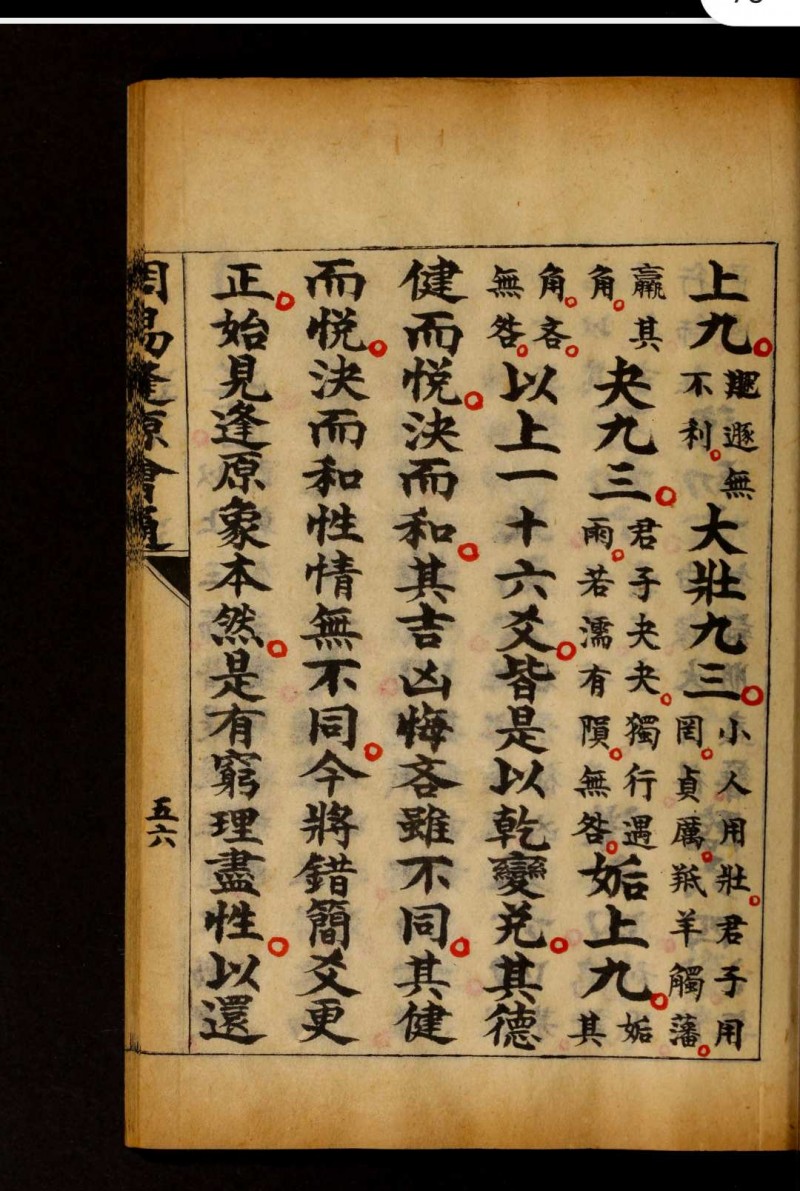 上九。遯無不利。大壯九三。小人用壯。君子用罔。貞厲。羝羊觸藩。
羸其角。夬九三。君子夬夬。獨行遇雨。若濡有隕。無咎。姤上九。姤其
角。吝。無咎。以上一十六爻。皆是以乾變兌。其德
健而悅。決而和。其吉凶悔吝雖不同。其健
而悅。決而和性情無不同。今將錯簡爻更
正。始見逢原象本然。是有窮理盡性。以還
周易逢原會通
五六